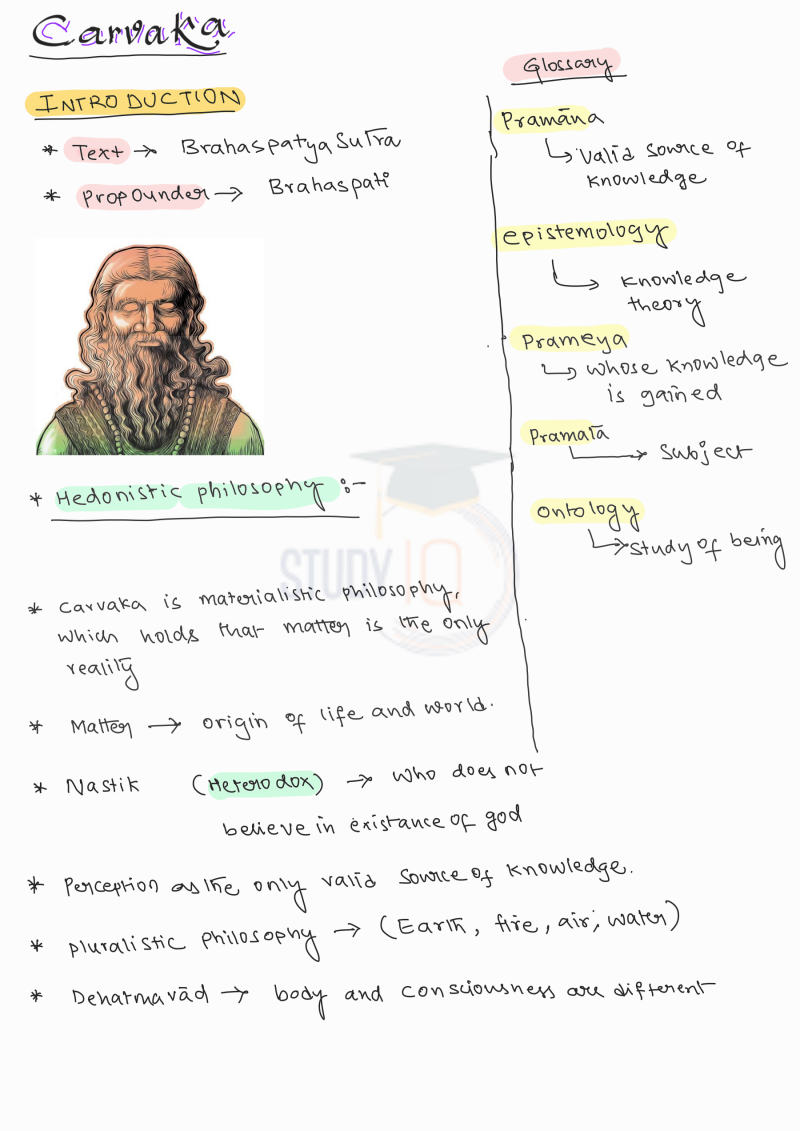 Carvaka
INTRODUCTION
* Text → Brahaspatya Sutra
* Propounder → Brahaspati
* Hedonistic philosophy :-
* Carvaka is materialistic philosophy,
which holds that matter is the only
reality
* Matter → origin of life and world.
* Nastik (Heterodox) → who does not
believe in existance of god
* Perception as the only valid source of knowledge.
* pluralistic philosophy → (Earth, fire, air, water)
* Dehatmavād → body and consciousness are different
Glossary
Pramāna
↳ Valid source of
knowledge
epistemology
↳ knowledge
theory
Prameya
↳ whose knowledge
is gained
Pramatā
↳ subject
ontology
↳ study of being
STUDY IQ